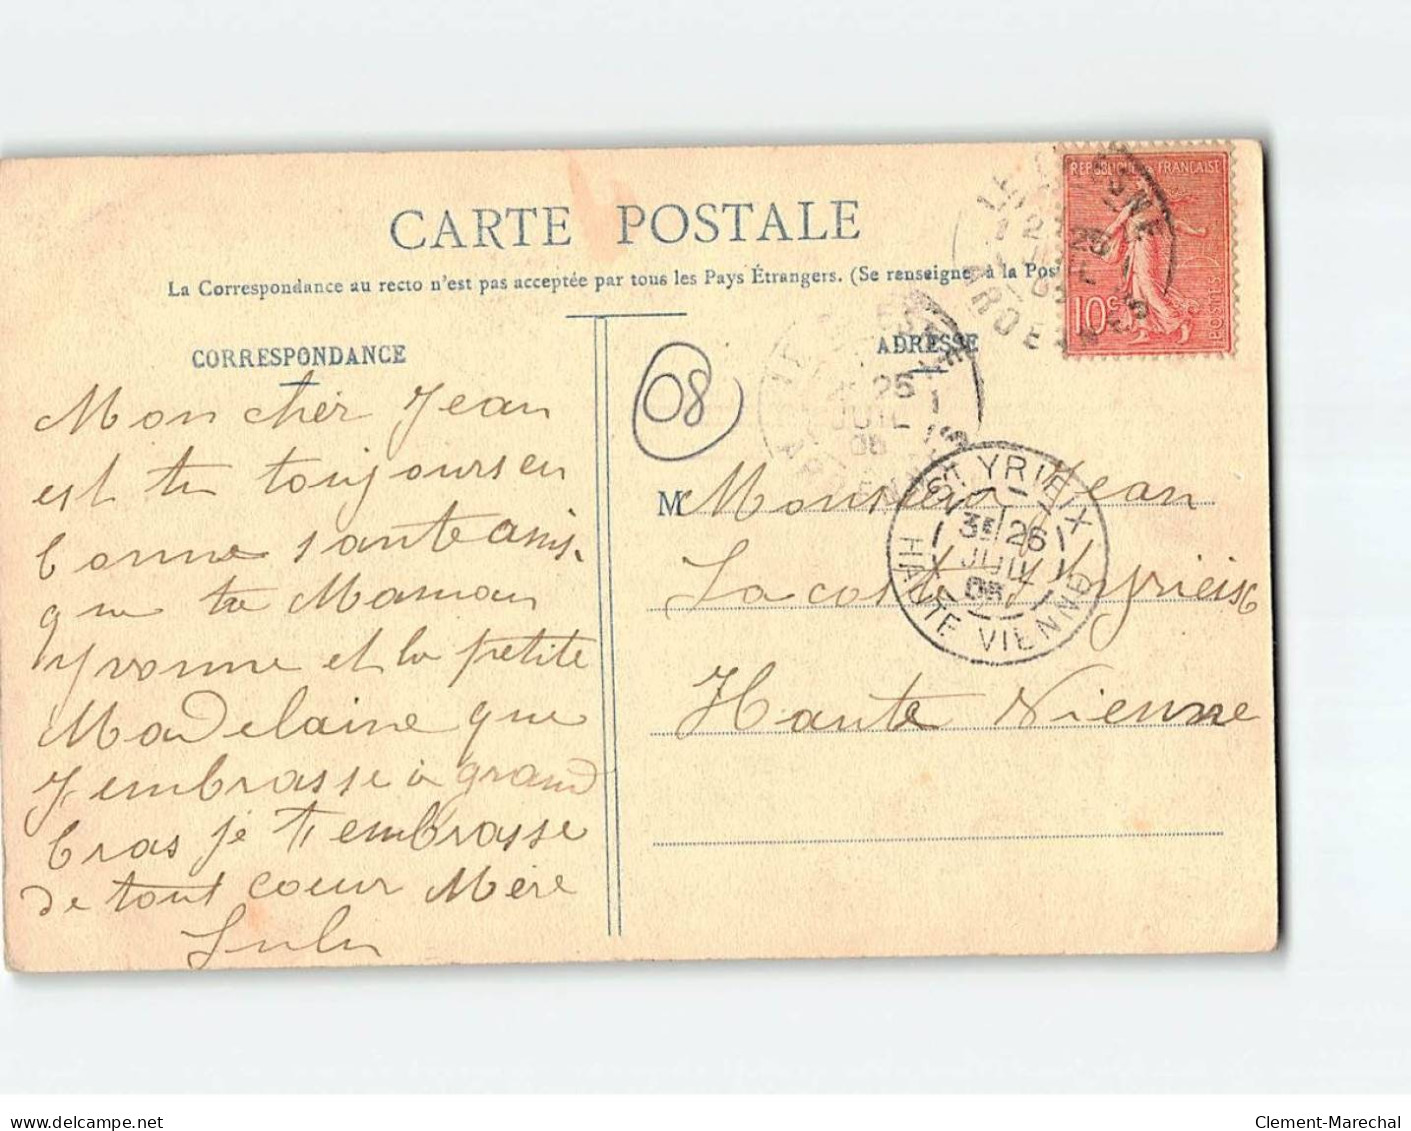 CARTE POSTALE
La Correspondance au recto n'est pas acceptée par tous les Pays Étrangers. (Se renseigner à la Pos
CORRESPONDANCE
Mon cher Jean
est tu toujours en
bonne sante ainsi
que ta Maman
Yvonne et la petite
Madelaine que
J'embrasse à grand
bras je t'embrasse
de tout coeur Mère
Lulu
08
ADRESSE
M Monsieur Jean
Lacoste St Yrieix
Haute Vienne
REPUBLIQUE FRANÇAISE
10c
POSTES
LE CHESNE
ARDENNES
25
JUIL
05
ST YRIEIX
3E 26
JUIL
05
HAUTE VIENNE
delcampe.net
Clement-Marechal